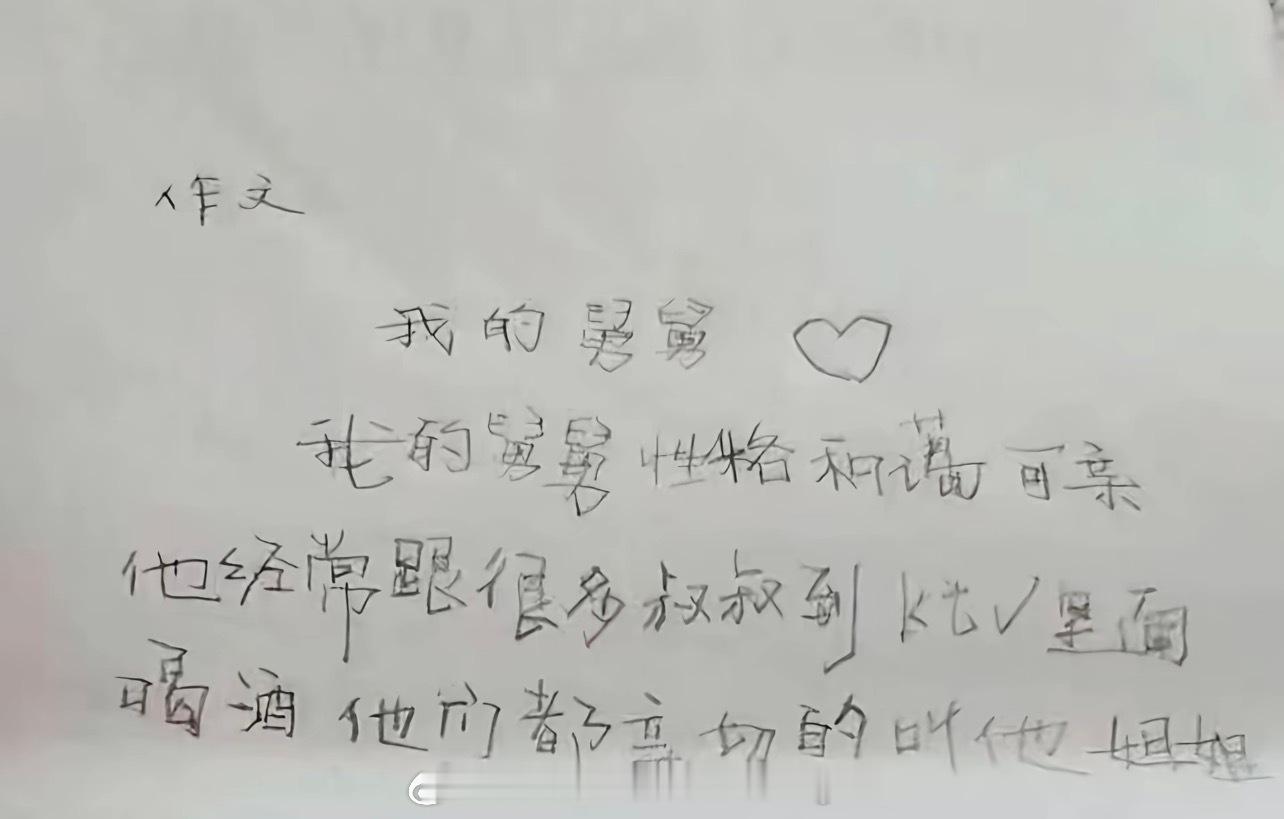 作文
我的舅舅
我的舅舅性格和蔼可亲
他经常跟很多叔叔到ktv里面
喝酒他们都亲切的叫他姐姐